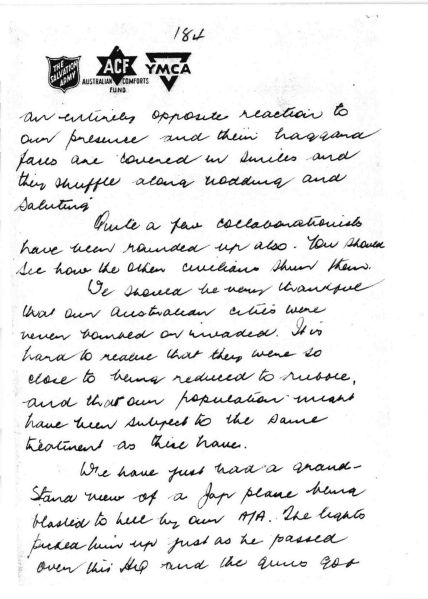 184
THE SALVATION ARMY
ACF
AUSTRALIAN COMFORTS FUND
YMCA
an entirely opposite reaction to
our presence and their haggard
faces are covered in smiles and
they shuffle along nodding and
saluting
Quite a few collaborationists
have been rounded up also. You should
see how the other civilians shun them.
We should be very thankful
that our Australian cities were
never bombed or invaded. It is
hard to realise that they were so
close to being reduced to rubble,
and that our population might
have been subject to the same
treatment as these have.
We have just had a grand-
stand view of a Jap plane being
blasted to hell by our A/A. The lights
picked him up just as he passed
over this HQ and the guns got